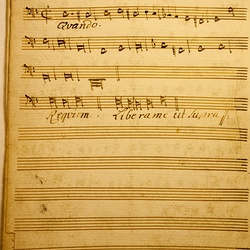 Quando.
Requiem. Libera me ut supra